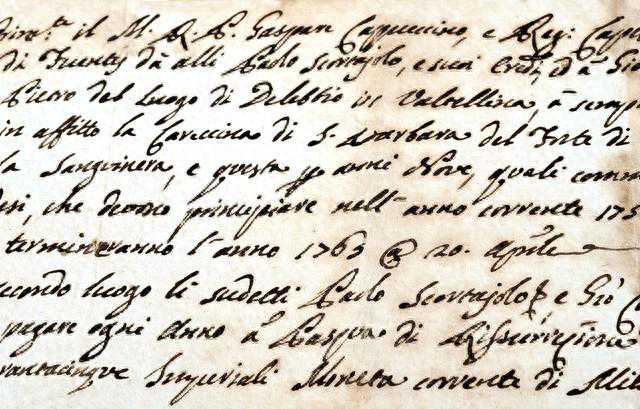 il M. R. P. Gaspare Cappuccino, e Reg:
di Fuentes dà alli Paolo Scortajolo, e suoi Eredi, ed à Gio
Piero del Luogo di Delebio in Valtellina, à semp
in affitto la Cascina di S. Barbara del Forte di
la Sanguinera, e questa p anni Nove, quali com
che devono principiare nell'anno corrente 175
termineranno l'anno 1763 @ 20. Aprile
econdo luogo li sudetti Paolo Scortajolo, e Gio
pagare ogni Anno a Pasqua di Rissurrezione
rantacinque Imperiali Moneta corrente di Mil